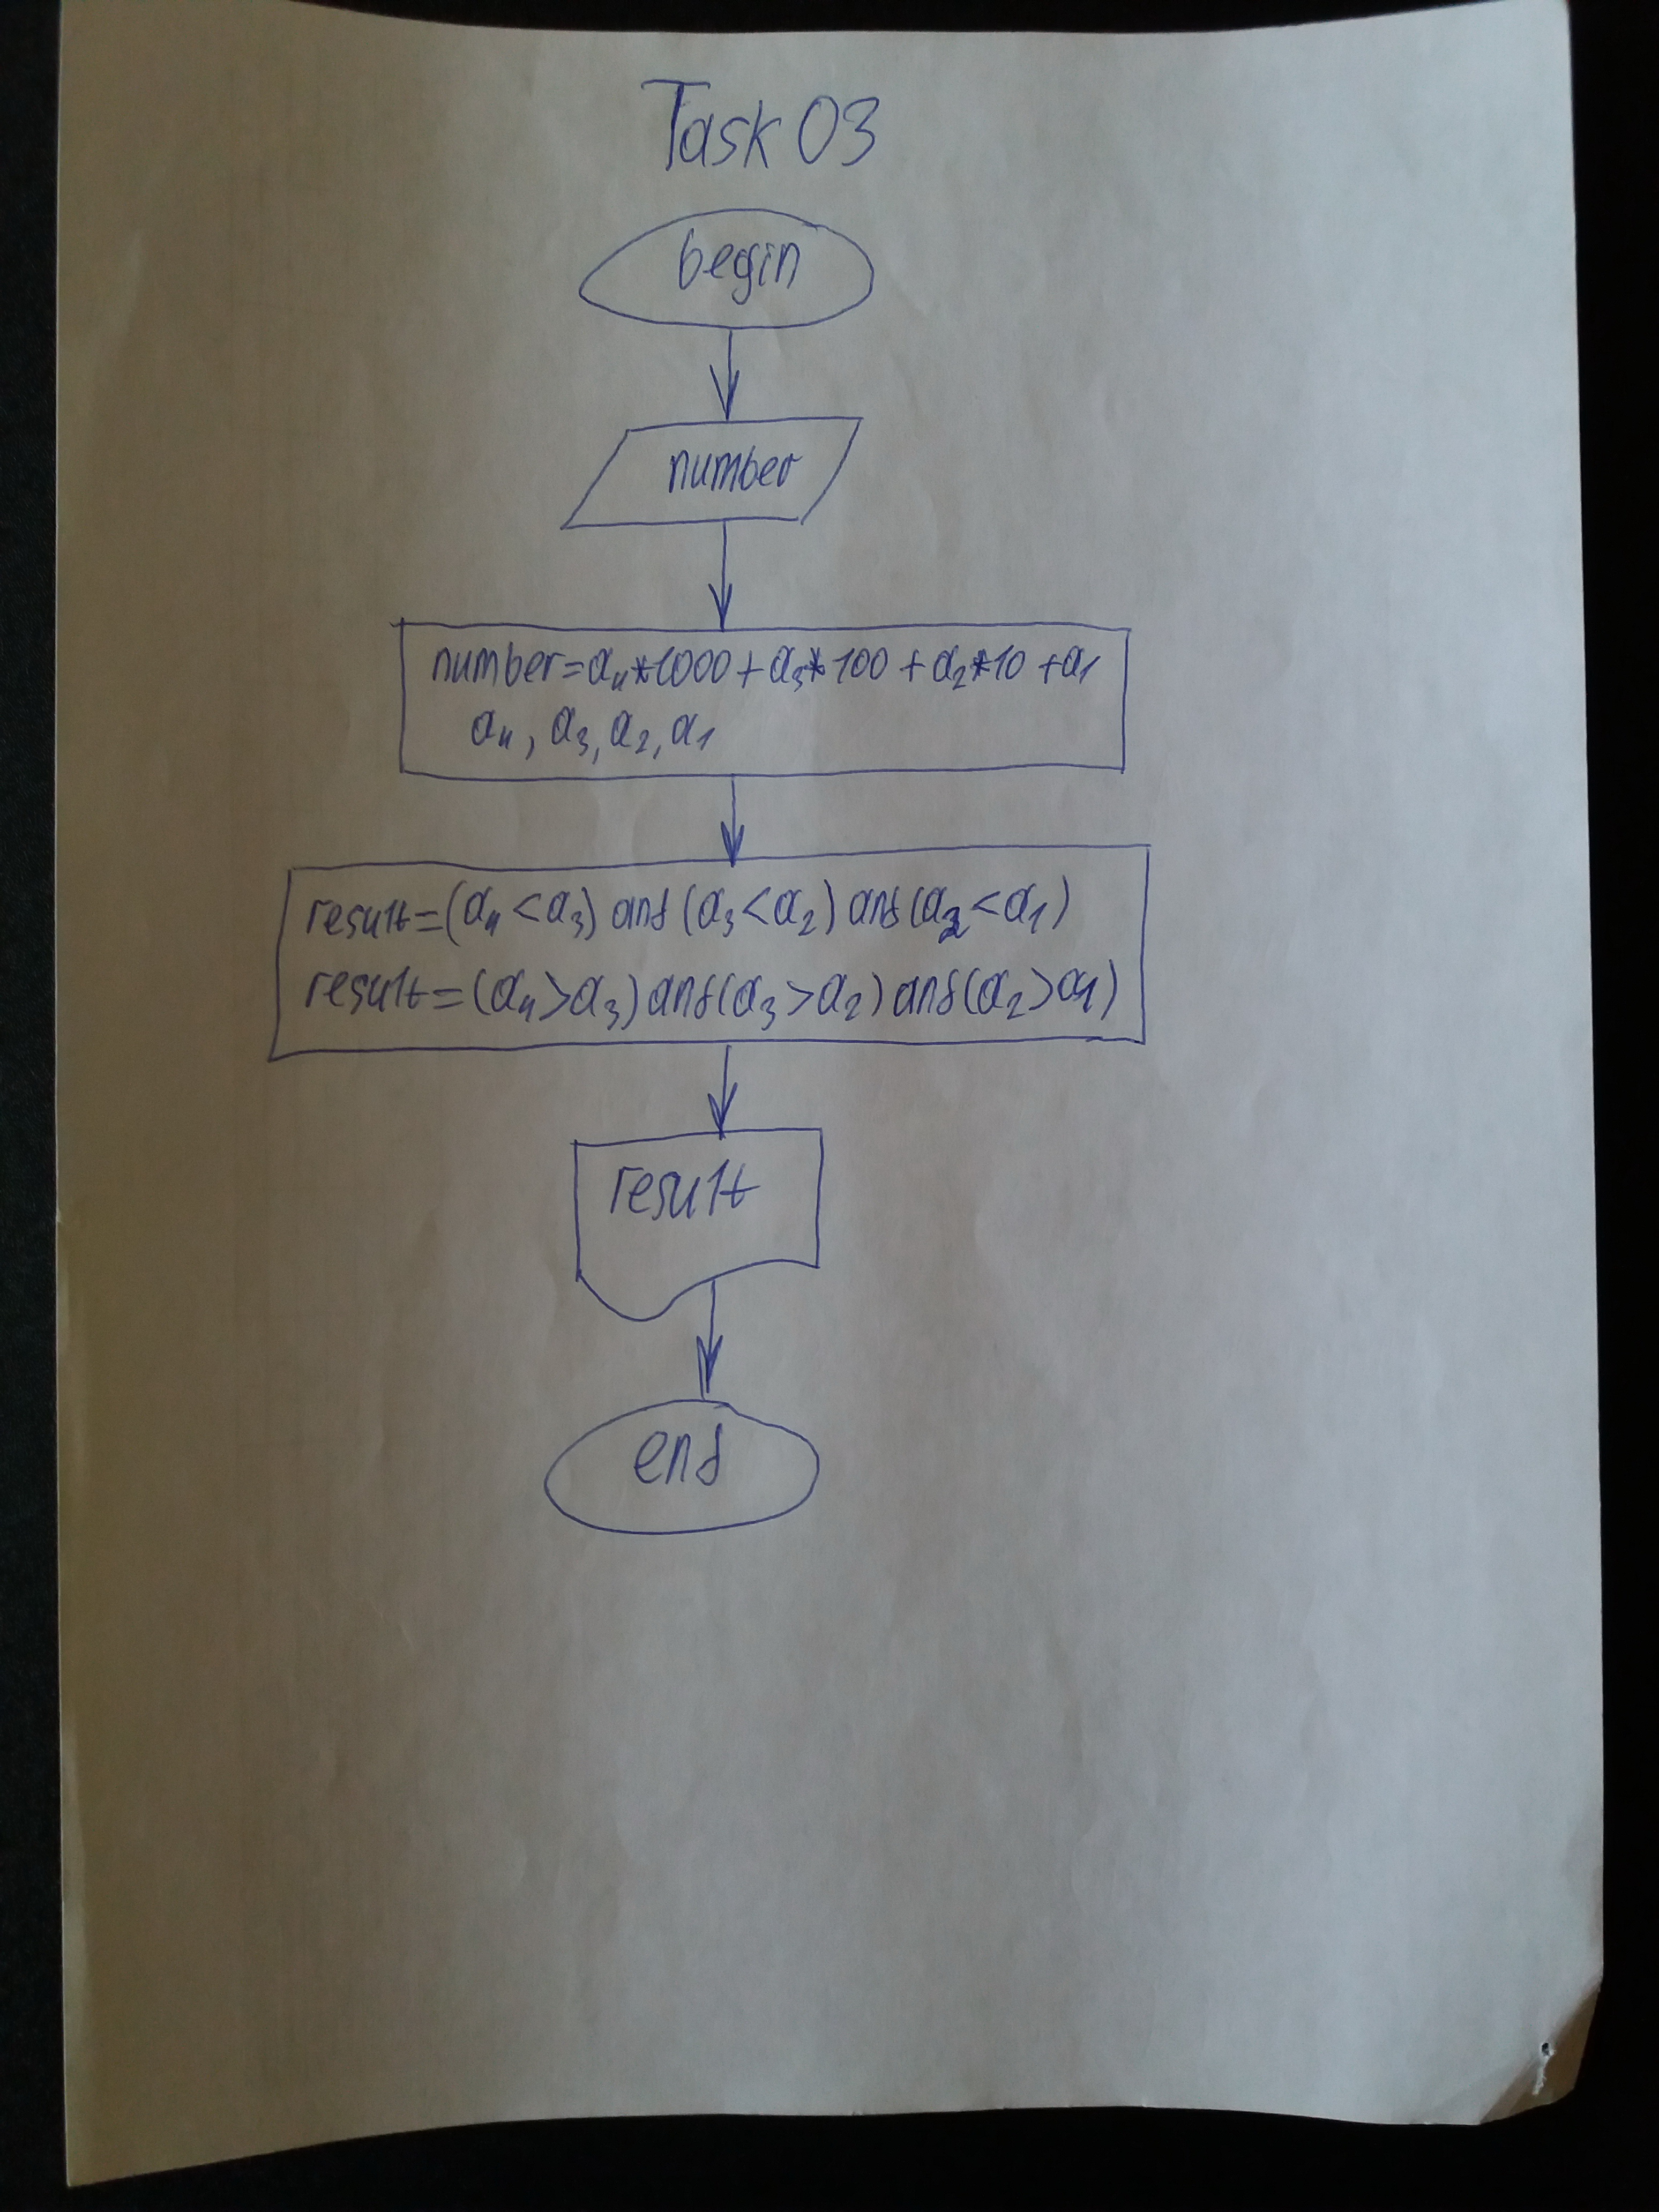 Task 03
begin
number
number=a₄*1000+a₃*100+a₂*10+a1
a₄, a₃, a₂, a₁
result=(a₄<a₃) and (a₃<a₂) and (a₂<a₁)
result=(a₄>a₃) and (a₃>a₂) and (a₂>a₁)
result
end